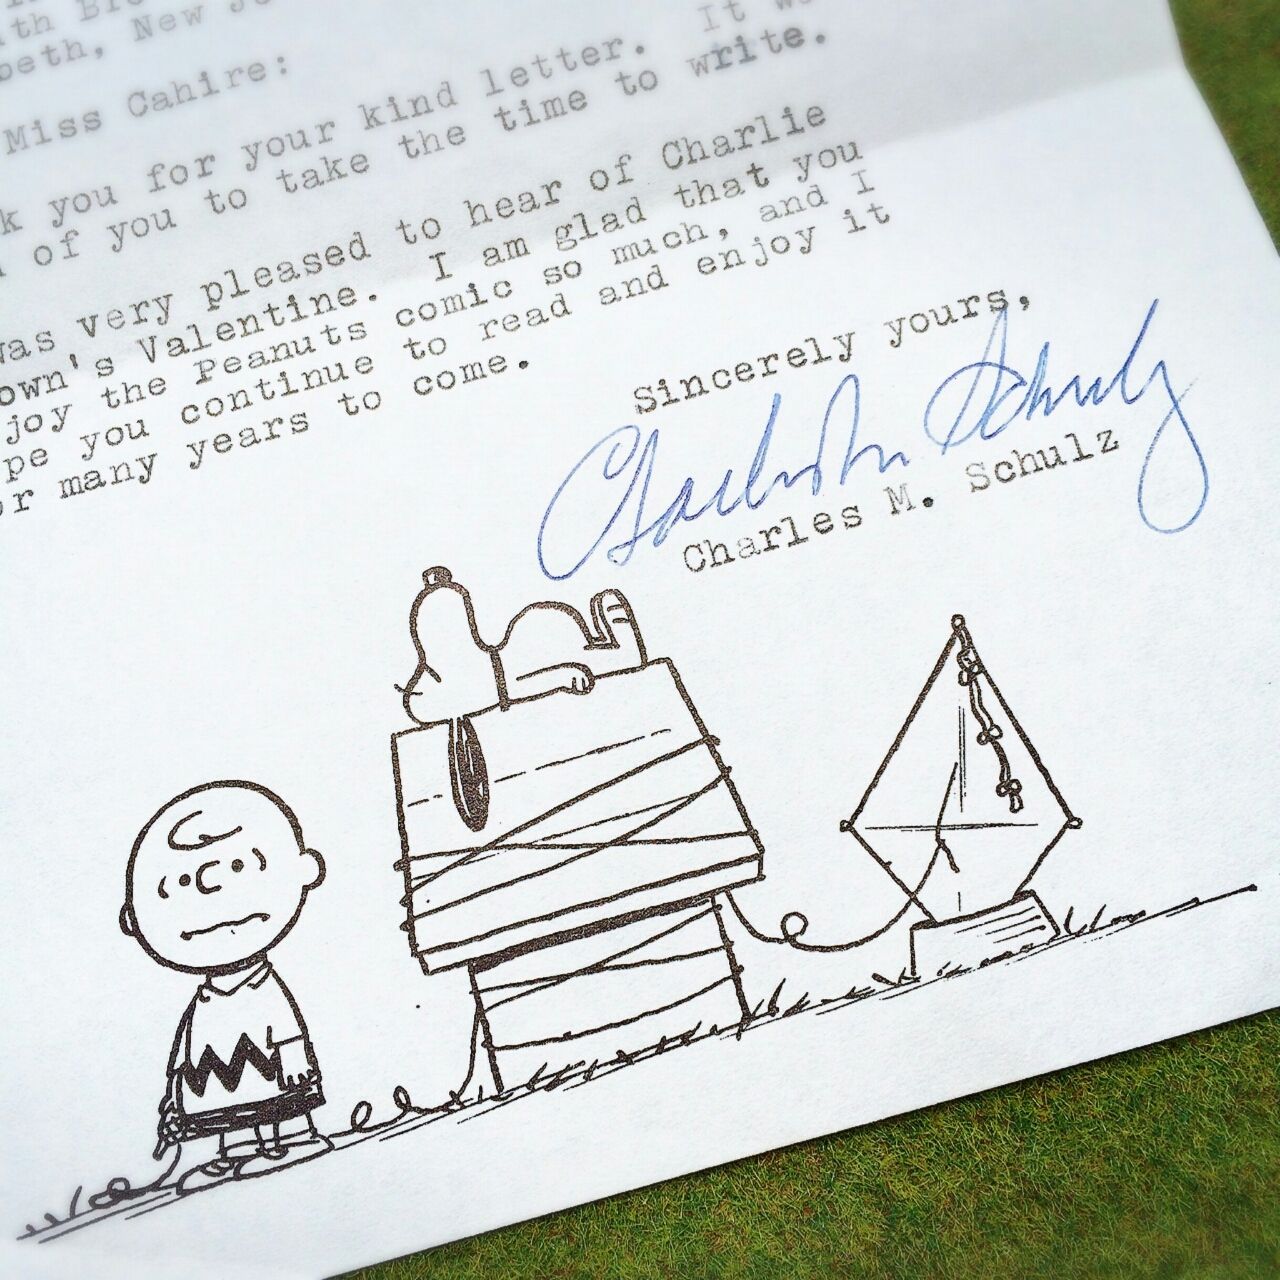 Miss Cahire:
k you for your kind letter. It w
of you to take the time to write.
was very pleased to hear of Charlie
own's Valentine. I am glad that you
joy the Peanuts comic so much, and I
pe you continue to read and enjoy it
r many years to come.
Sincerely yours,
Charles M. Schulz
Charles M. Schulz